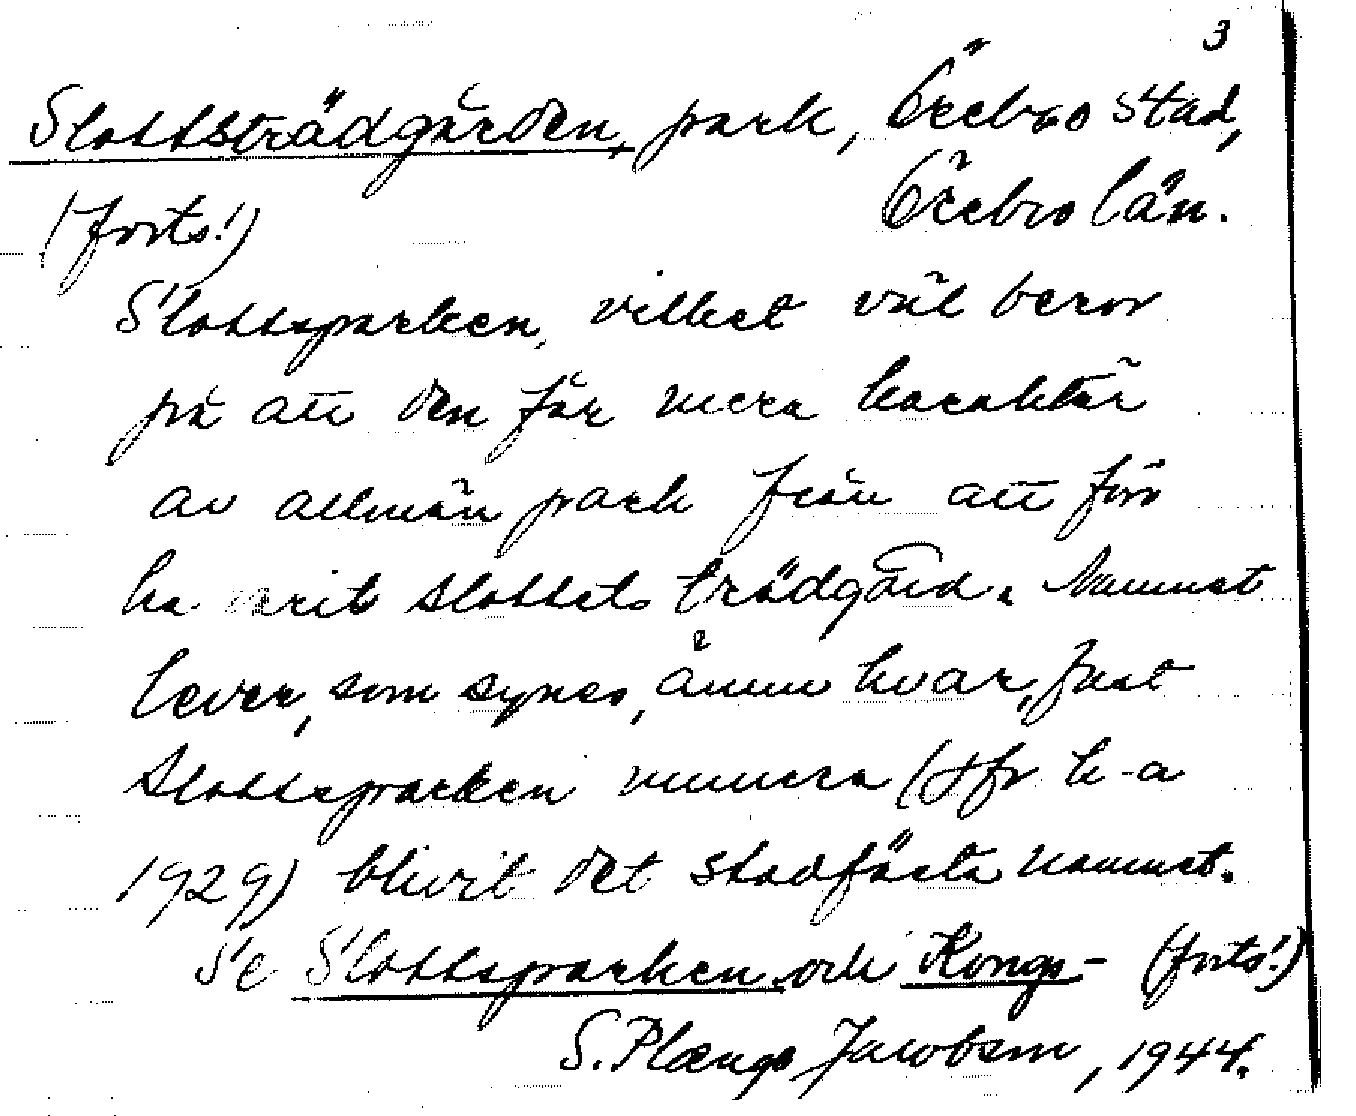 3
Slottsträdgården, park, Örebro stad,
(forts!) Örebro län.
Slottsparken, vilket väl beror
på att den får mera karaktär
av allmän park från att förr
ha varit slottets trädgård. Namnet
lever, som synes, ännu kvar, fast
Slottsparken numera (jfr k-a
1929) blivit det stadfästa namnet.
Se Slottsparken och Kungs- (forts!)
S. Plænge Jacobson, 1944.